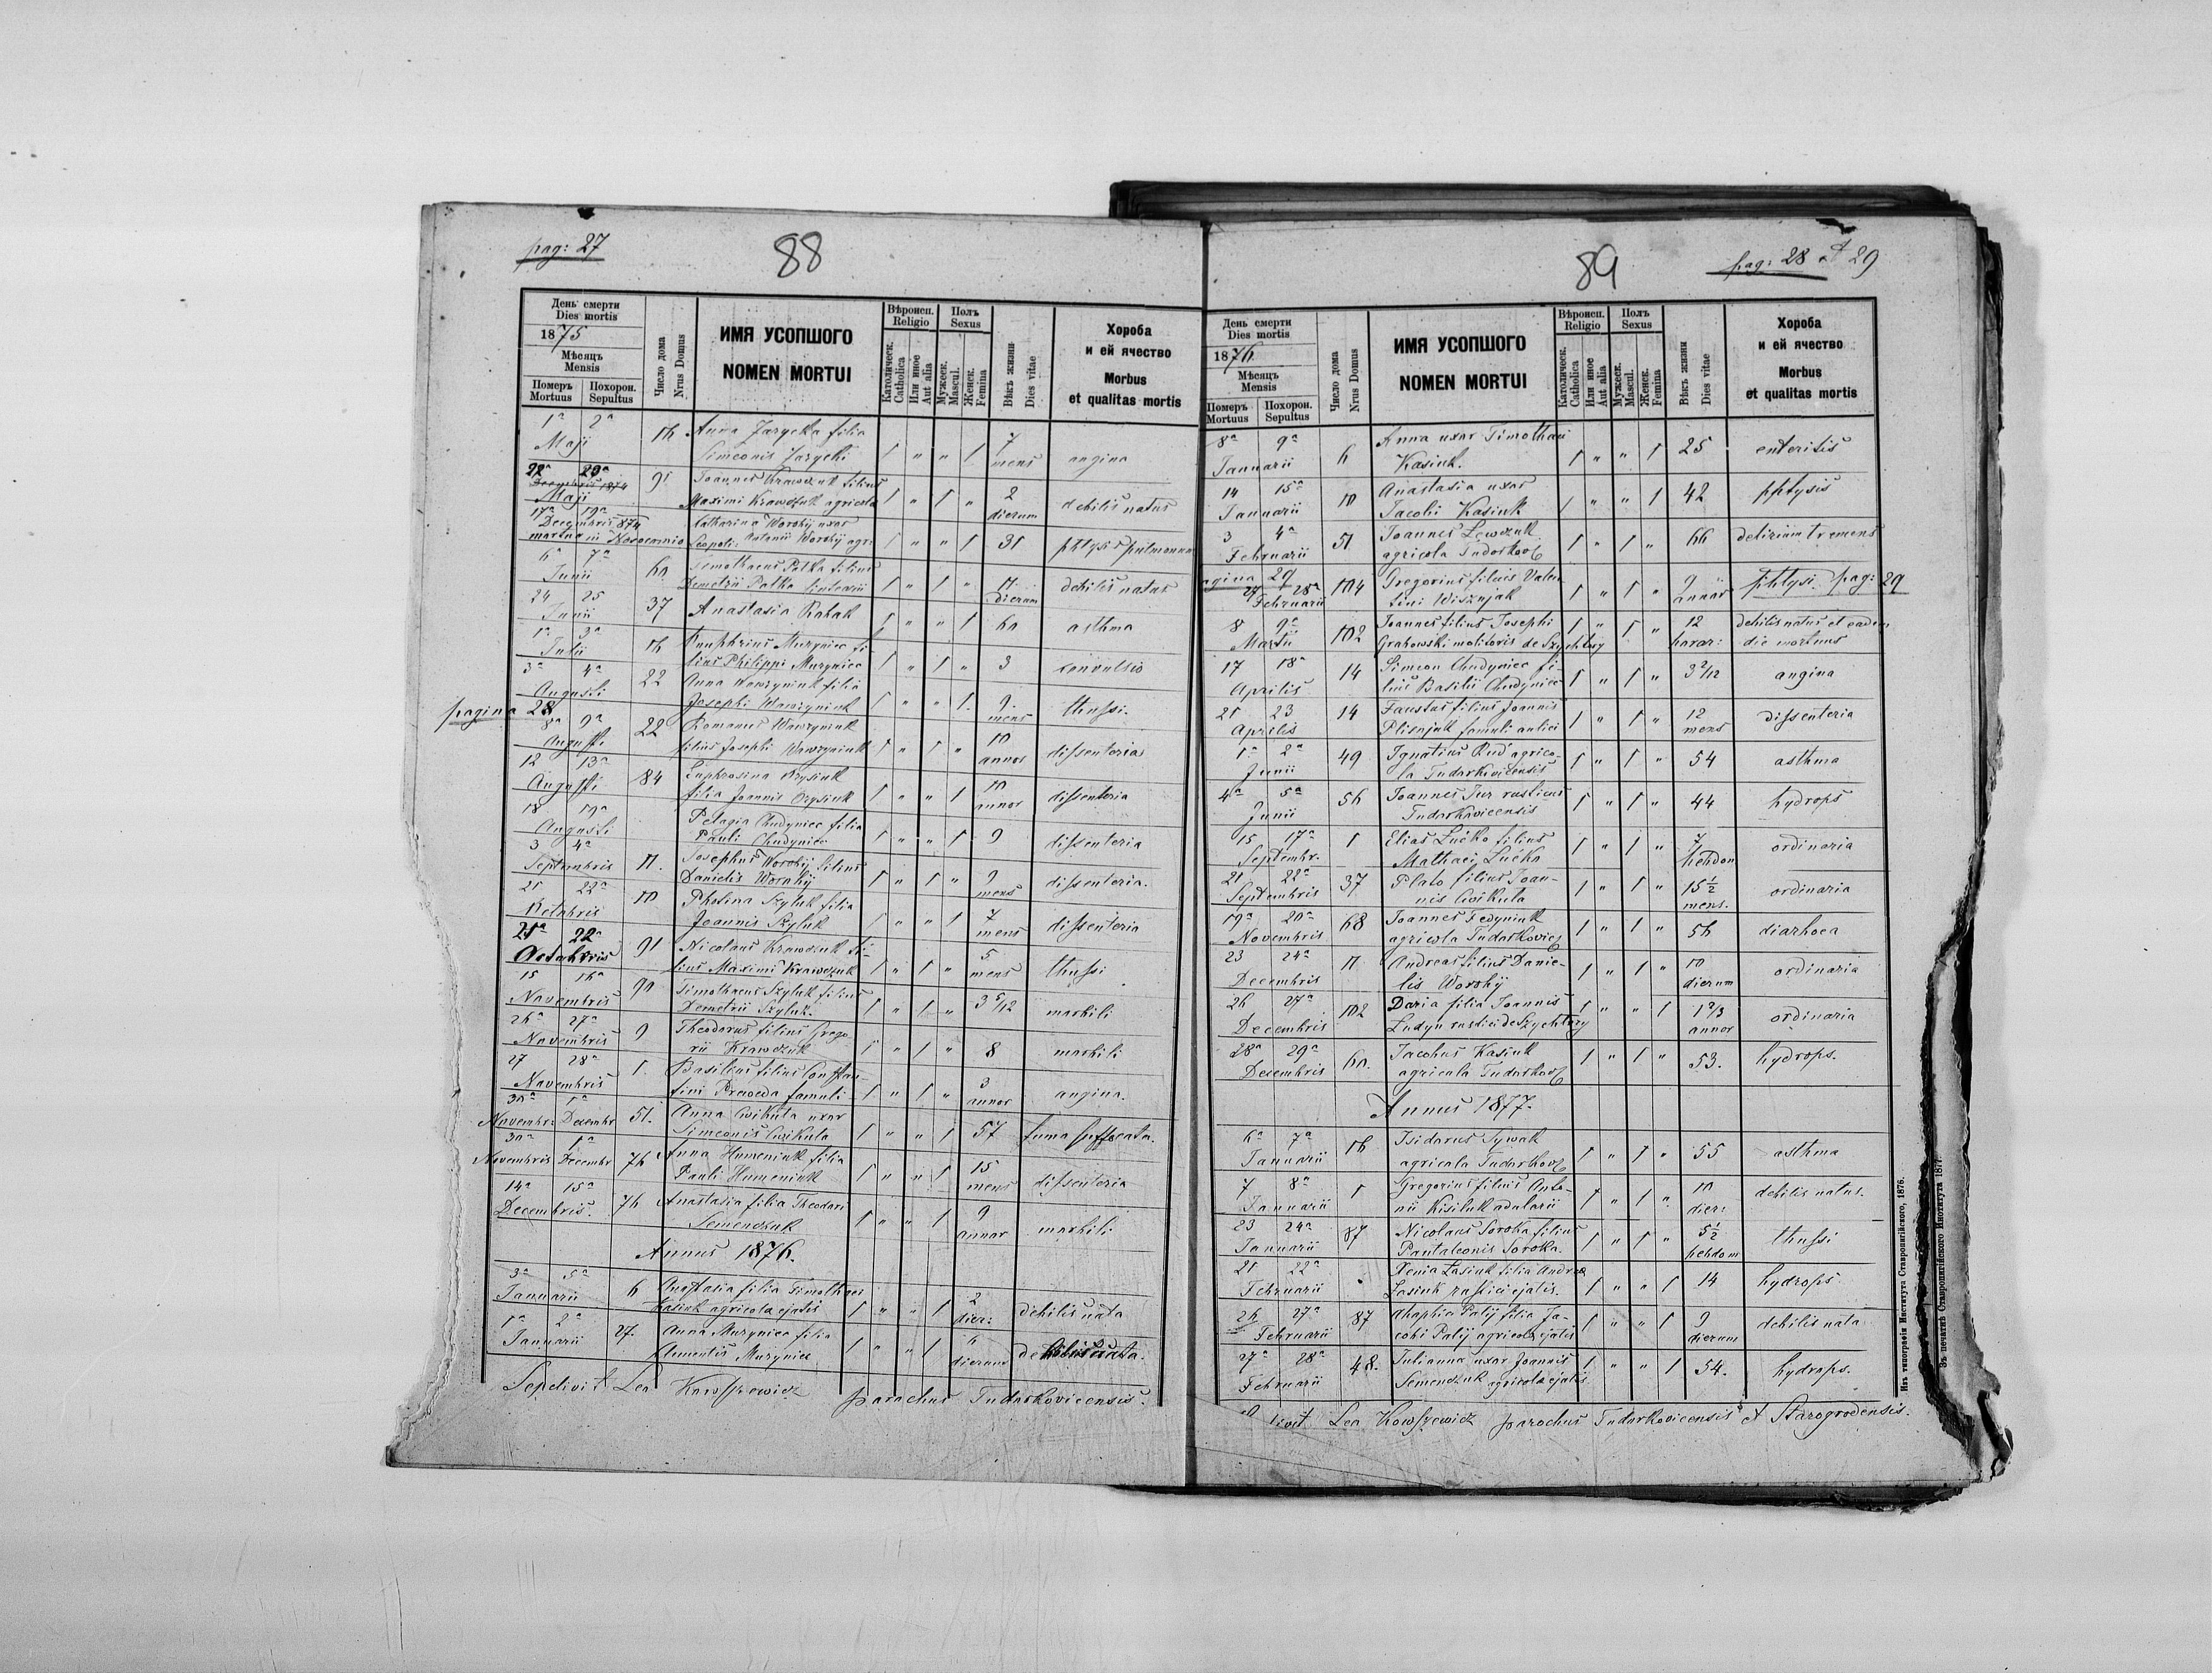 pag: 27
88
День смерти
Dies mortis
1875
Мѣсяцъ
Mensis
Померъ Похорон.
Mortuus Sepultus
Число дома
Nrus Domus
ИМЯ УСОПШОГО
NOMEN MORTUI
Вѣроисп.
Religio
Католическ.
Catholica
Или иное
Aut alia
Полъ
Sexus
Мужеск.
Mascul.
Женск.
Femina
Вѣкъ жизни
Dies vitae
Хороба
и ей ячество
Morbus
et qualitas mortis
1a 2a Maji 16 Anna Jarycka filia
Simeonis Jarycki 1 " " 1 7 mens angina
22a 23a Decembris 1874 Maji 91 Joannes Krawczuk filius
Maximi Krawczuk agricola 1 " 1 " 2 dierum debilis natus
17a 19a Decembris 874 Katharina Worohij uxor
mortua in Nosocomio Leopoli: Antonii Worohij agr: 1 " " 1 31 phtysis pulmonum
6a 7a Junii 60 Timothaeus Patka filius
Demetrii Patka 1 " 1 " dierum debilis natus
24 25 Junii 37 Anastasia 1 " " 1 60 asthma
1a 3a Julii 16 Onuphrius Muzyniec fi-
lius Philippi Muzyniec 1 " 1 " 3 convulsio
3a 4a Augusti 22 Anna Wawryniuk filia
Josephi Wawryniuk 1 " " 1 9 mens thussi.
pagina 28
8a 9a Augusti 22 Romanus Wawryniuk
filius Josephi Wawryniuk 1 " 1 " 10 annor dissenteria
12 13a Augusti 84 Euphrosina Brysiuk
filia Joannis Brysiuk 1 " " 1 10 annor dissenteria
18 19a Augusti Pelagia Chudyniec filia
Pauli Chudyniec 1 " " 1 9 dissenteria
3 4a Septembris 11. Josephus Worohij filius
Danielis Worohij 1 " 1 " 9 mens dissenteria.
21 22a Octobris 10 Photina Szyluk filia
Joannis Szyluk 1 " " 1 7 mens dissenteria
21a 22a Octobris 91 Nicolaus Krawczuk fi-
lius Maximi Krawczuk 1 " 1 " 5 mens thussi
15 16a Novembris 90 Timothaeus Szyluk filius
Demetrii Szyluk. 1 " 1 " 3 5/12 morbili
26a 27a Novembris 9 Theodorus filius Grego
rii Krawczuk 1 " 1 " 8 morbili
27 28a Novembris 1. Basilius filius Constan-
tini famuli 1 " 1 " 3 annor angina.
30a 1a Novembr: Decembr 51. Anna Cwikuta uxor
Simeonis Cwikuta 1 " " 1 57 fumo suffocata.
30a 1a Novembris Decembr 76 Anna Humeniuk filia
Pauli Humeniuk 1 " " 1 15 mens dissenteria
14a 15a Decembris. 76 Anastasia filia Theodori
Semenczuk 1 " " 1 9 annor morbili
Annus 1876.
3a 5a Januarii 6 Anastasia filia Timothaei
Kasiuk agricolae ejatis 1 " " 1 2 dier: debilis nata
1a 2a Januarii 27. Anna Muzyniec filia
Clementis Muzyniec 1 " " 1 6 dierum debilis nata.
Sepelivit Leo Kowszewicz parochus Tudorkovicensis.
89
pag: 28 et 29
День смерти
Dies mortis
1876
Мѣсяцъ
Mensis
Померъ Похорон.
Mortuus Sepultus
Число дома
Nrus Domus
ИМЯ УСОПШОГО
NOMEN MORTUI
Вѣроисп.
Religio
Католическ.
Catholica
Или иное
Aut alia
Полъ
Sexus
Мужеск.
Mascul.
Женск.
Femina
Вѣкъ жизни
Dies vitae
Хороба
и ей ячество
Morbus
et qualitas mortis
8a 9a Januarii 6 Anna uxor Timothaei
Kasiuk. 1 " " 1 25 enteritis
14 15a Januarii 10 Anastasia uxor
Jacobi Kasiuk 1 " " 1 42 phtysis
3 4a Februarii 51 Joannes Lewczuk
agricola Tudorkov 1 " 1 " 66 delirium tremens
agina 29
27 28a Februarii 104 Gregorius filius Valen
tini Wisznjak 1 " 1 " 9 annor phtysi. pag: 29
8 9a Martii 102 Joannes filius Josephi
Grabowski molitoris de Szychtory 1 " 1 " 12 horar: debilis natus et eadem
die mortuus
17 18a Aprilis 14 Simeon Chudyniec fi-
lius Basilii Chudyniec 1 " 1 " 3 2/12 angina
21 23 Aprilis 14 Faustus filius Joannis
Plisnjuk famuli aulici 1 " 1 " 12 mens dissenteria
1a 2a Junii 49 Ignatius Rud agrico-
la Tudorkovicensis 1 " 1 " 54 asthma
4a 5a Junii 56 Joannes Jur rusticus
Tudorkovicensis 1 " 1 " 44 hydrops
15 17a Septembr. 1 Elias Lućko filius
Mathaei Lućko 1 " 1 " 7 hebdom ordinaria
21 22a Septembris 37 Plato filius Joan-
nis Cwikuta 1 " 1 " 15 1/2 mens. ordinaria
19a 20a Novembris 68 Joannes Fedyniuk
agricola Tudorkovic 1 " 1 " 56 diarhoea
23 24a Decembris 11 Andreas filius Danie-
lis Worohij 1 " 1 " 10 dierum ordinaria
26 27a Decembris 102 Daria filia Joannis
Ludyn rustici de Szychtory 1 " " 1 1 2/3 annor ordinaria
28a 29a Decembris 60. Jacobus Kasiuk
agricola Tudorkov 1 " 1 " 53. hydrops.
Annus 1877.
6a 7a Januarii 16 Isidorus Sywak
agricola Tudorkov 1 " 1 " 55 asthma
7 8a Januarii 1 Gregorius filius Anto-
nii Kisiluk 1 " 1 " 10 dier: debilis natus.
23 24a Januarii 87 Nicolaus Soroka filius
Pantaleonis Soroka. 1 " 1 " 5 1/2 hebdom thussi
21 22a Februarii Xenia Lasiuk filia Andreae
Lasiuk rustici ejatis. 1 " " 1 14 hydrops
26 27a Februarii 87 Ahaphia Palij filia Ja-
cobi Palij agricolae ejatis 1 " " 1 9 dierum debilis nata
27a 28a Februarii 48. Julianna uxor Joannis
Semenczuk agricolae ejatis 1 " " 1 54. hydrops.
livit Leo Kowszewicz parochus Tudorkovicensis et Starogrodensis.
Изъ типографіи Института Ставропигійского, 1876.
Зъ печатнѣ Ставропигійского Института 1877.